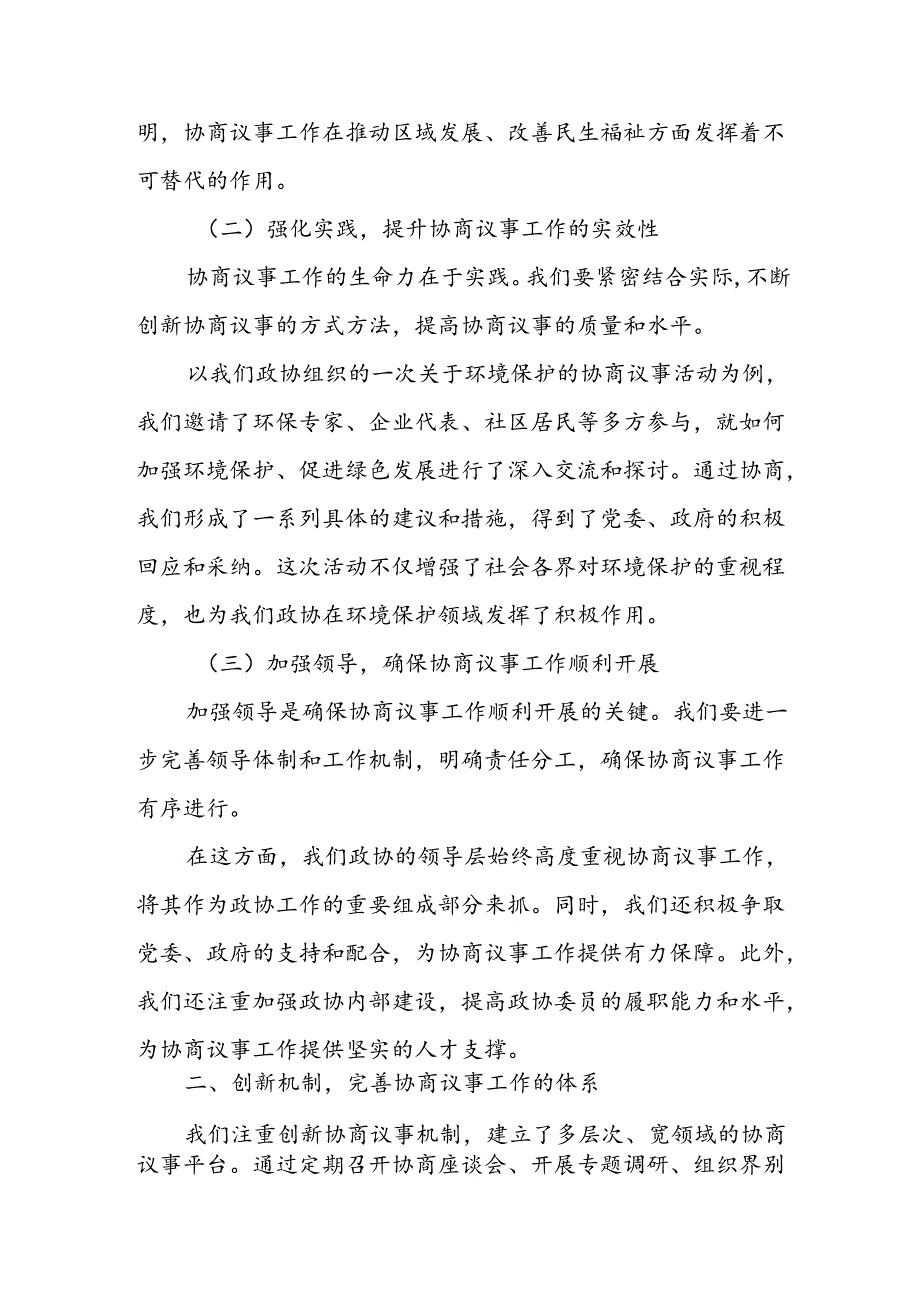 明，协商议事工作在推动区域发展、改善民生福祉方面发挥着不
可替代的作用。
（二）强化实践，提升协商议事工作的实效性
协商议事工作的生命力在于实践。我们要紧密结合实际,不断
创新协商议事的方式方法，提高协商议事的质量和水平。
以我们政协组织的一次关于环境保护的协商议事活动为例，
我们邀请了环保专家、企业代表、社区居民等多方参与，就如何
加强环境保护、促进绿色发展进行了深入交流和探讨。通过协商，
我们形成了一系列具体的建议和措施，得到了党委、政府的积极
回应和采纳。这次活动不仅增强了社会各界对环境保护的重视程
度，也为我们政协在环境保护领域发挥了积极作用。
（三）加强领导，确保协商议事工作顺利开展
加强领导是确保协商议事工作顺利开展的关键。我们要进一
步完善领导体制和工作机制，明确责任分工，确保协商议事工作
有序进行。
在这方面，我们政协的领导层始终高度重视协商议事工作，
将其作为政协工作的重要组成部分来抓。同时，我们还积极争取
党委、政府的支持和配合，为协商议事工作提供有力保障。此外，
我们还注重加强政协内部建设，提高政协委员的履职能力和水平，
为协商议事工作提供坚实的人才支撑。
二、创新机制，完善协商议事工作的体系
我们注重创新协商议事机制，建立了多层次、宽领域的协商
议事平台。通过定期召开协商座谈会、开展专题调研、组织界别